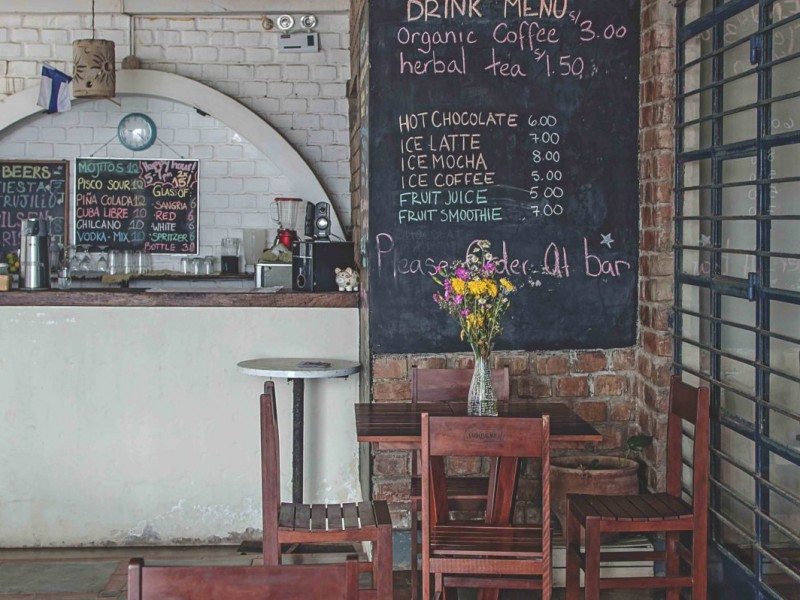 DRINK MENU
Organic Coffee S/ 3.00
herbal tea S/ 1.50
HOT CHOCOLATE 6.00
ICE LATTE 7.00
ICE MOCHA 8.00
ICE COFFEE 5.00
FRUIT JUICE 5.00
FRUIT SMOOTHIE 7.00
Please Order at bar
BEERS
MOJITOS 12
PISCO SOUR 12
PIÑA COLADA 12
CUBA LIBRE 10
CHILCANO 10
VODKA-MIX 10
Happy hour!
GLASS OF
SANGRIA
RED
WHITE
SPRITZER
BOTTLE